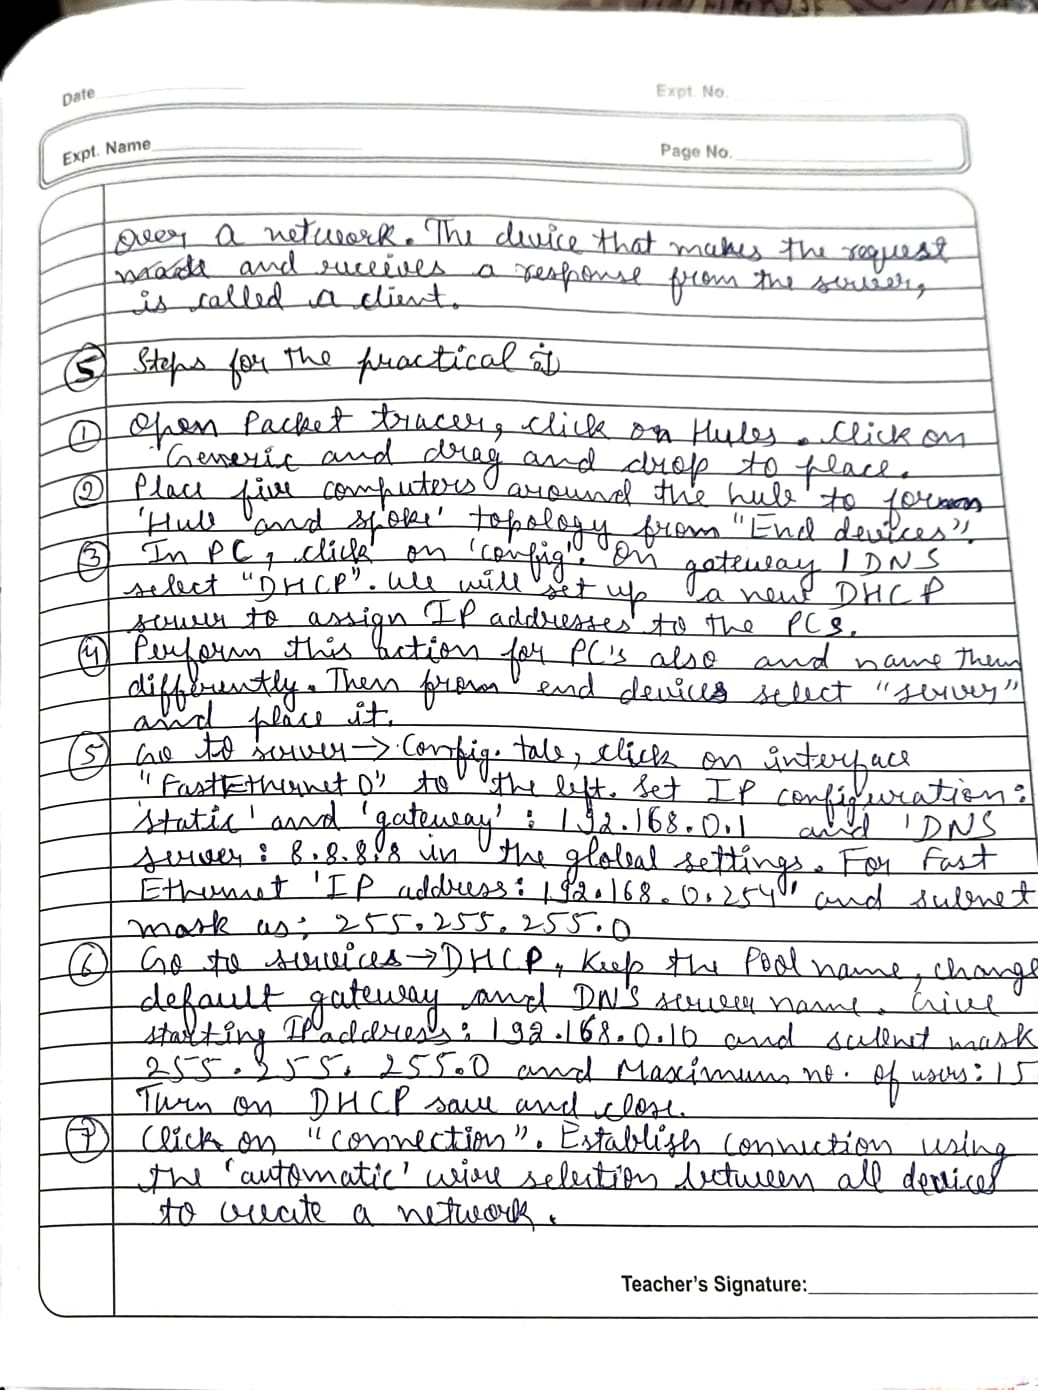 Date
Expt. No.
Expt. Name
Page No.
over a network. The device that makes the request
and receives a response from the server,
is called a client.
⑤ Steps for the practical :
① Open Packet tracer, click on Hubs. Click on
Generic and drag and drop to place.
② Place five computers around the hub to form
'Hub and spoke' topology from "End devices".
③ In PC, click on 'config'. On gateway / DNS
select "DHCP". We will set up a new DHCP
server to assign IP addresses to the PCs.
④ Perform this action for PC's also and name them
differently. Then from end devices select "server"
and place it.
⑤ Go to server → Config. tab, click on interface
"FastEthernet 0" to the left. Set IP configuration:
'static' and 'gateway' : 192.168.0.1 and 'DNS
server: 8.8.8.8 in the global settings. For Fast
Ethernet 'IP address: 192.168.0.254' and subnet
mask as: 255.255.255.0
⑥ Go to services → DHCP, Keep the Pool name, change
default gateway and DNS server name. Give
starting IP address: 192.168.0.10 and subnet mask
255.255.255.0 and Maximum no. of users: 15
Turn on DHCP save and close.
⑦ Click on "connection". Establish connection using
the 'automatic' wire selection between all devices
to create a network.
Teacher's Signature: